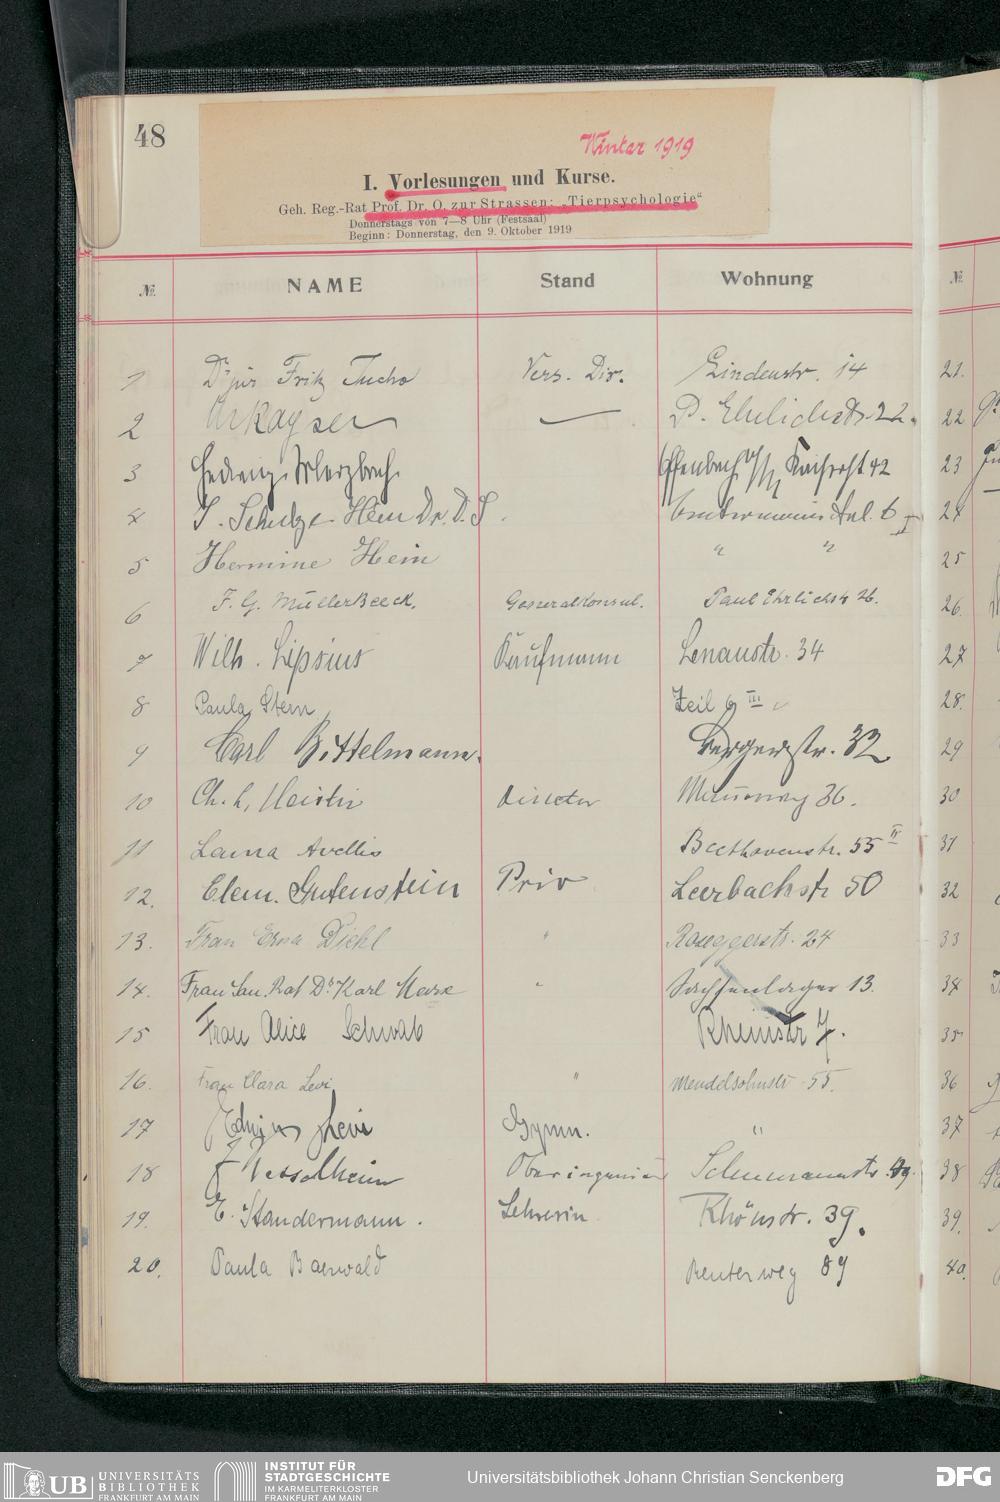 48
Winter 1919
I. Vorlesungen und Kurse.
Geh. Reg.-Rat Prof. Dr. O. zur Strassen: „Tierpsychologie“
Donnerstags von 7—8 Uhr (Festsaal)
Beginn: Donnerstag, den 9. Oktober 1919
№ NAME Stand Wohnung №
1 Dr jur Fritz Tucho Vers. Dir. Lindenstr. 14 21.
2 P. Ehrlichstr. 22. 22
3 Hedwig Merzbach Offenbach a/M Kaiserst 42 23
4 J. Schulze-Hein Dr. D. S. Anl. 6 II 24
5 Hermine Hein " " 25
6 F. G. MüllerBeeck. Generalkonsul. Paul Ehrlichstr 26. 26.
7 Wilh. Lipsius Kaufmann Lenaustr. 34 27
8 Paula Stern Zeil 6 III 28.
9 Carl Bittelmann. 32 29
10 Ch. L. 36. 30
11 Laura Avellis Beethovenstr. 55 II 31
12. Clem. Gutenstein Priv Leerbachstr 50 32
13. Frau Erna Diehl " Roseggerstr. 24 33
14. Frau San. Rat Dr. Karl Marx " Sachsenlager 13. 34
15 Frau Alice Schwab Rheinstr 7. 35
16. Frau Clara Levi " Mendelsohnstr 55. 36
17 Edwin Levi Gymn. " 37
18 Oberingenieur Schumannstr. 38
19. E. Standermann. Lehrerin Rhönstr. 39. 39.
20. Paula Baerwald Reuterweg 89 40.
UB UNIVERSITÄTS
BIBLIOTHEK
FRANKFURT AM MAIN
INSTITUT FÜR
STADTGESCHICHTE
IM KARMELITERKLOSTER
FRANKFURT AM MAIN
Universitätsbibliothek Johann Christian Senckenberg
DFG